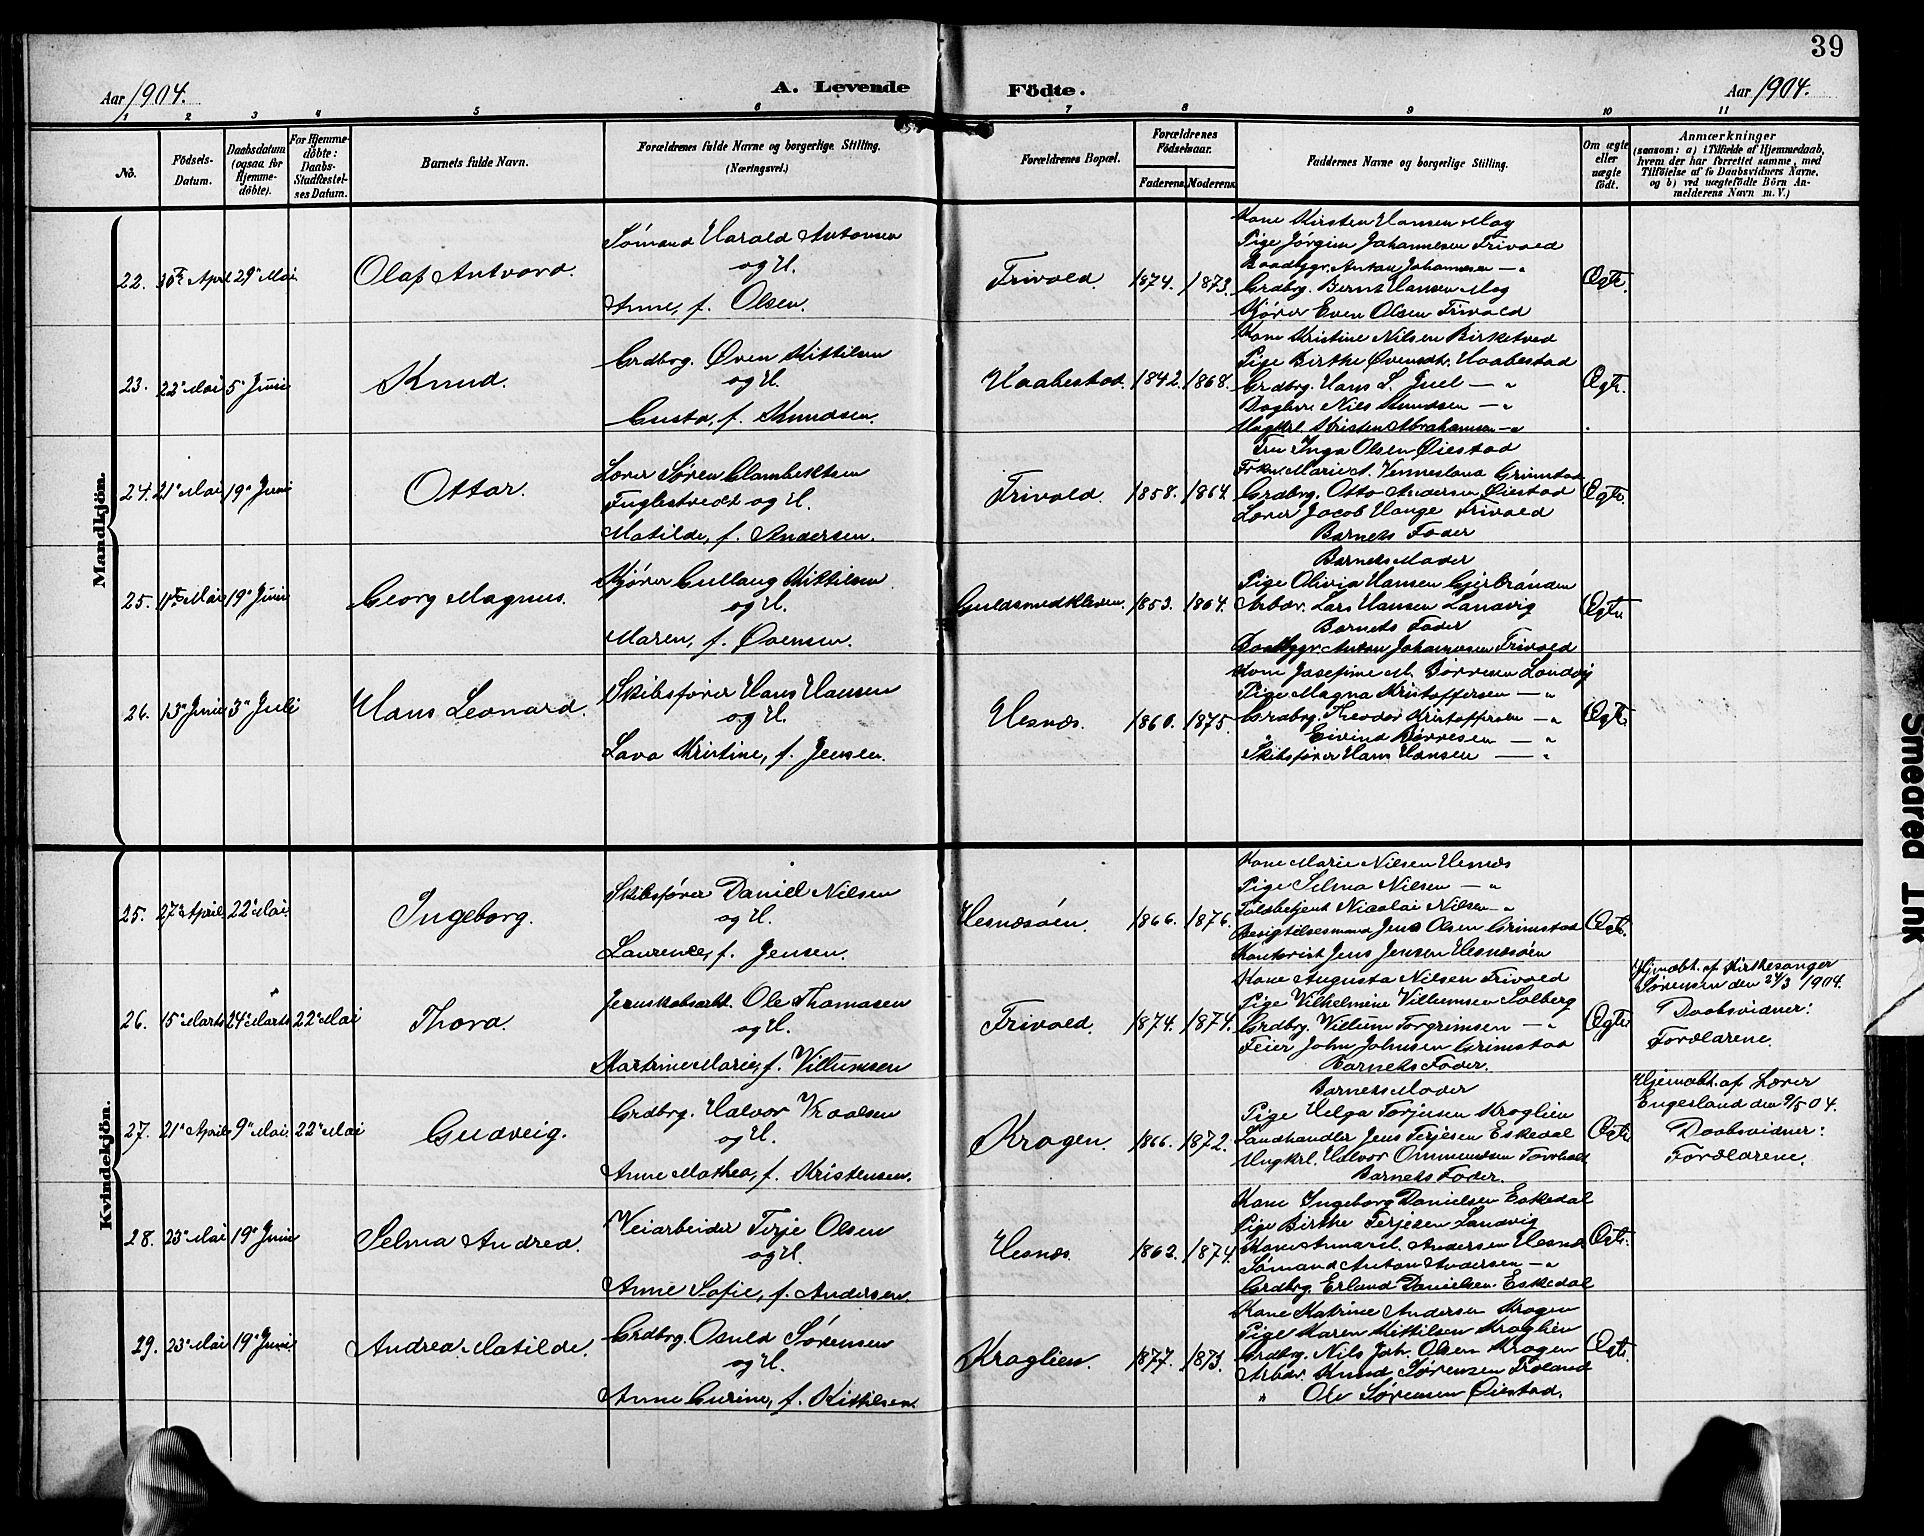 39
Aar 1904. A. Levende Födte. Aar 1904.
1 2 3 4 5 6 7 8 9 10 11
No.
Födsels-
Datum.
Daabsdatum
(ogsaa for
Hjemme-
döbte).
For Hjemme-
döbte:
Daabs-
Stadfæstel-
ses Datum.
Barnets fulde Navn.
Forældrenes fulde Navne og borgerlige Stilling.
(Næringsvei.)
Forældrenes Bopæl.
Forældrenes
Födselsaar.
Faderens. Moderens.
Faddernes Navne og borgerlige Stilling.
Om ægte
eller
uægte
födt.
Anmærkninger
(saasom: a) i Tilfælde af Hjemmedaab,
hvem der har forrettet samme, med
Tilföielse af to Daabsvidners Navne,
og b) ved uægtefödte Börn An-
melderens Navn m. V.)
Mandkjön.
22. 30te April 29de Mai
Olaf Antvord.
Sømand Harald Antonsen
og H.
Anne, f. Olsen.
Frivold. 1874. 1873.
Kone Kirsten Hansen Mog
Pige Jørgine Johannesen Frivold
Baadbygr. Anton Johannesen — "
Grdbrg. Bernt Hansen Mog
Kjører Even Olsen Frivold
Ægte.
23. 22de Mai 5te Juni
Knud.
Grdbrg. Øven Kittilsen
og H.
Gusta, f. Knudsen.
Haabestad. 1842. 1868.
Kone Kristine Nilsen Birketved
Pige Birthe Øvensdtr. Haabestad
Grdbrg. Hans L. Juel — "
Nils Knudsen — "
Ungkrl. Kristen Abrahamsen — "
Ægte.
24. 21de Mai 19de Juni
Ottar.
Lærer Søren Clambektsen
Fuglestvedt og H.
Matilde, f. Andersen.
Frivold. 1858. 1864.
Fru Inga Olsen Øiestad
Frkn. Marie A. Vennesland Grimstad
Grdbrg. Otto Andersen Øiestad
Lærer Jacob Hauge Frivold
Barnets Fader
Ægte.
25. 11te Mai 19de Juni
Georg Magnus.
Kjører Gullaug Kittilsen
og H.
Maren, f. Øvensen.
Guldsmedkleven. 1853. 1864.
Barnets Moder
Pige Olivia Hansen Gjerbrønden
Arbdr. Lars Hansen Landvig
Barnets Fader
Baadbygr. Anton Johannesen Frivold
Ægte
26. 13de Juni 3die Juli
Hans Leonard.
Skibsfører Hans Hansen
og H.
Lava Kristine, f. Jensen.
Hesnes. 1860. 1875.
Kone Josefine M. Børresen Landvig
Pige Magna Kristoffersen — "
Grdbrg. Theodor Kristoffersen — "
" Eivind Børresen — "
Skibsfører Hans Hansen — "
Ægte.
Kvindekjön.
25. 27de April 22de Mai
Ingeborg.
Skibsfører Daniel Nilsen
og H.
Laurence, f. Jensen.
Hesnesøen. 1866. 1876.
Kone Marie Nilsen Hesnes
Pige Selma Nilsen — "
Toldbetjent Nicolai Nilsen — "
Besigtelsesmand Jens Olsen Grimstad
Kontorist Jens Jensen Hesnesøen
Ægte.
26. 15de Marts 24de Marts 22de Mai
Thora.
Jernskibsarb. Ole Thomasen
og H.
Martine Marie, f. Villumsen
Frivold. 1874. 1874.
Kone Augusta Nilsen Frivold
Pige Vilhelmine Villumsen Solberg
Grdbrg. Villum Torgrimsen — "
Feier John Johnsen Grimstad
Barnets Fader.
Ægte
Hjmdbt. af Kirkesanger
Sørensen den 24/3 1904.
Daabsvidner:
Forældrene.
27. 21de April 9de Mai. 22de Mai
Gudveig.
Grdbrg. Halvor Vraalsen
og H.
Anne Mathea, f. Kristensen.
Kragen. 1866. 1872.
Barnets Moder
Pige Helga Torjusen Kroglien
Landhandler Jens Terjesen Eskedal
Ungkrl. Halvor Ommundsen
Barnets Fader.
Ægte
Hjemdbt. af Lærer
Engesland den 9/5 04.
Daabsvidner:
Forældrene.
28. 23de Mai 19de Juni
Selma Andrea.
Veiarbeider Terje Olsen
og H.
Anne Sofie, f. Andersen.
Hesnes. 1862. 1874.
Kone Ingeborg Danielsen Eskedal
Pige Birthe Terjesen Landvig
Kone Annar El. Andersen Hesnes
Sømand Anton Andersen — "
Grdbrg. Erland Danielsen Eskedal
Ægte.
29. 23de Mai 19de Juni
Andrea Matilde.
Grdbrg. Osuld Sørensen
og H.
Anne Gurine, f. Kittilsen.
Kroglien. 1877. 1873.
Kone Katrine Andersen Kragen
Pige Karen Kittilsen Kroglien
Grdbrg. Nils Joh. Olsen Kragen
Arbdr. Knud Sørensen Froland
" Ole Sørensen Øiestad.
Ægte.
Smeared Ink